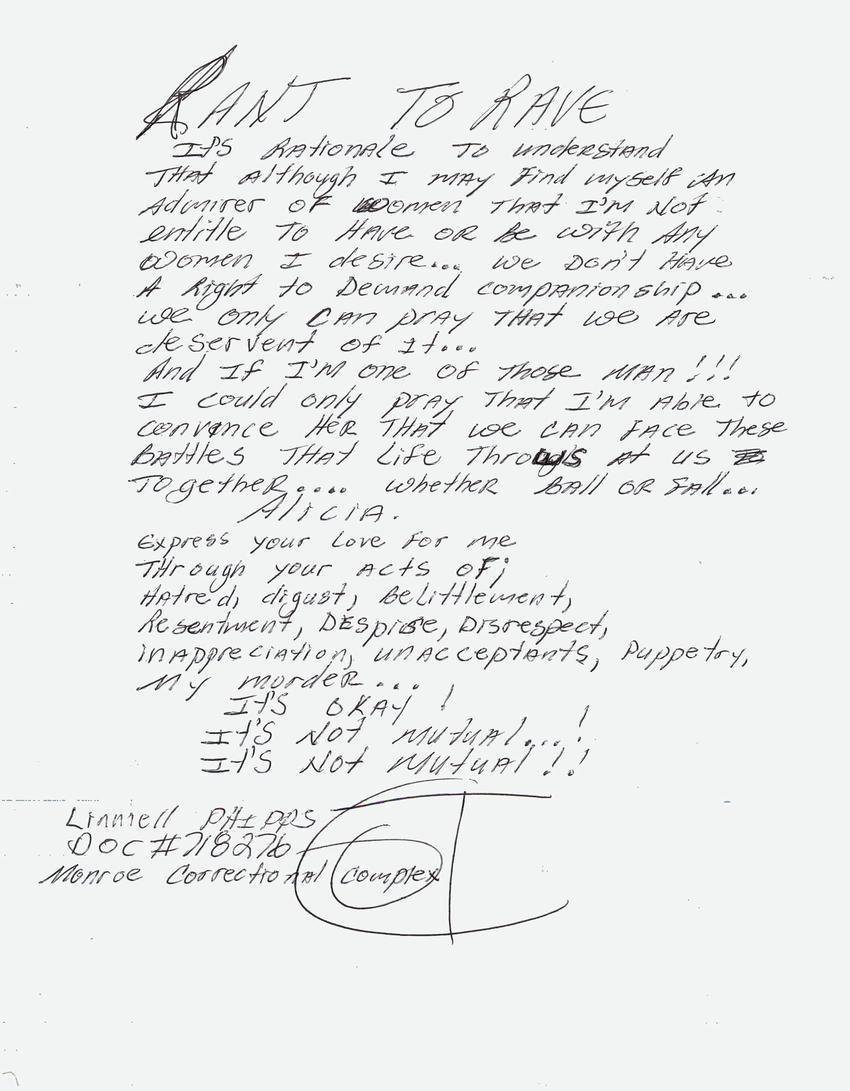 RANT TO RAVE
It's Rationale to understand
That although I may find myself An
Admirer of women that I'm not
entitle to Have or Be with Any
women I desire... we Don't Have
A Right to Demand companionship...
we only can pray that we are
deservent of It...
And If I'm one of those man!!!
I could only pray that I'm Able to
convince Her that we can face these
Battles that life throws at us
Together.... whether Ball or Fall...
Alicia.
Express your Love for me
Through your acts of;
Hatred, digust, Belittlement,
Resentment, Despise, Disrespect,
inappreciation, unacceptants, Puppetry,
My murder....
It's okay!
It's Not mutual....!
It's Not Mutual!!
Linniell PHIPPS
DOC#718276
Monroe Correctional Complex